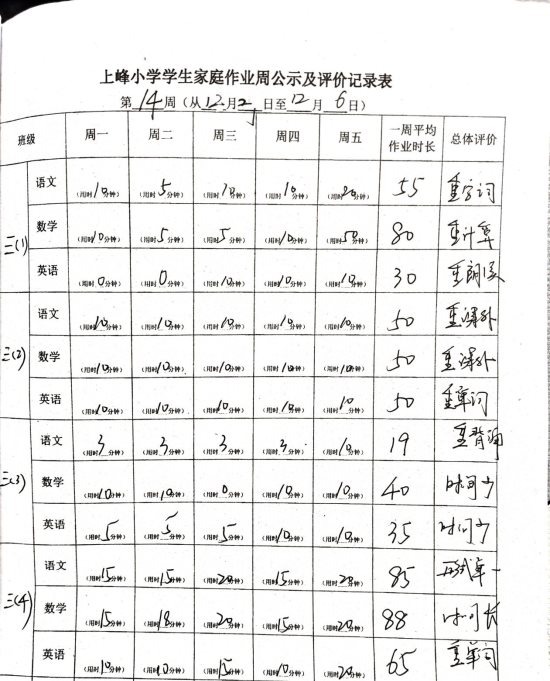 上峰小学学生家庭作业周公示及评价记录表
第14周（从12月2日至12月6日）
班级 周一 周二 周三 周四 周五 一周平均作业时长 总体评价
三(1) 语文 (用时10分钟) (用时5分钟) (用时10分钟) (用时10分钟) (用时20分钟) 55 重字词
数学 (用时10分钟) (用时5分钟) (用时5分钟) (用时10分钟) (用时50分钟) 80 重计算
英语 (用时0分钟) (用时0分钟) (用时10分钟) (用时10分钟) (用时10分钟) 30 重朗读
三(2) 语文 (用时10分钟) (用时10分钟) (用时10分钟) (用时10分钟) (用时10分钟) 50 重课外
数学 (用时10分钟) (用时10分钟) (用时10分钟) (用时10分钟) (用时10分钟) 50 重课外
英语 (用时10分钟) (用时10分钟) (用时10分钟) (用时10分钟) (用时10分钟) 50 重单词
三(3) 语文 (用时3分钟) (用时3分钟) (用时3分钟) (用时3分钟) (用时10分钟) 19 重背诵
数学 (用时10分钟) (用时10分钟) (用时0分钟) (用时10分钟) (用时10分钟) 40 时间少
英语 (用时5分钟) (用时5分钟) (用时5分钟) (用时10分钟) (用时10分钟) 35 时间少
三(4) 语文 (用时15分钟) (用时15分钟) (用时20分钟) (用时15分钟) (用时20分钟) 85 形式单一
数学 (用时15分钟) (用时18分钟) (用时20分钟) (用时15分钟) (用时20分钟) 88 时间长
英语 (用时10分钟) (用时10分钟) (用时15分钟) (用时10分钟) (用时20分钟) 65 重单词